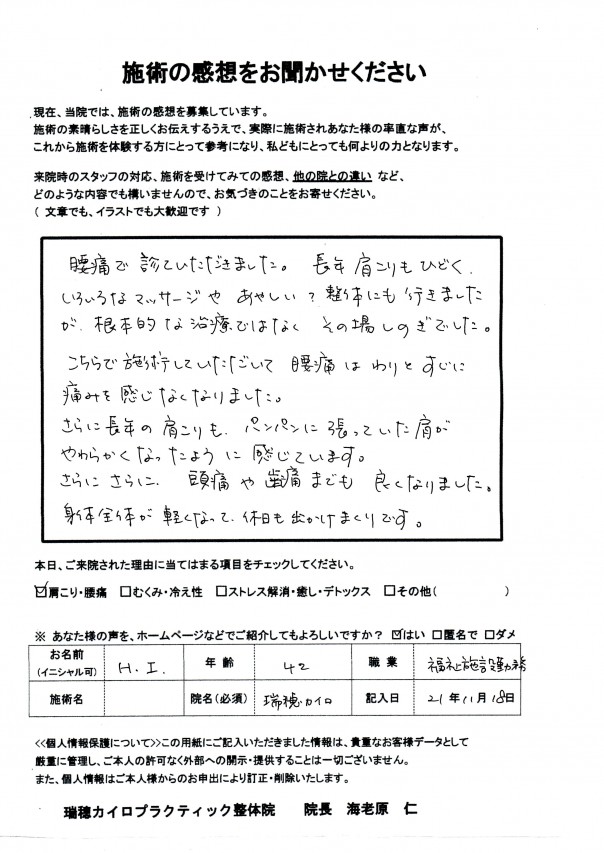 施術の感想をお聞かせください
現在、当院では、施術の感想を募集しています。
施術の素晴らしさを正しくお伝えするうえで、実際に施術されあなた様の率直な声が、
これから施術を体験する方にとって参考になり、私どもにとっても何よりの力となります。
来院時のスタッフの対応、施術を受けてみての感想、他の院との違い など、
どのような内容でも構いませんので、お気づきのことをお寄せください。
( 文章でも、イラストでも大歓迎です )
腰痛で診ていただきました。 長年肩こりもひどく、
いろいろなマッサージや あやしい?整体にも行きました
が、根本的な治療ではなく その場しのぎでした。
こちらで施術していただいて 腰痛はわりとすぐに
痛みを感じなくなりました。
さらに長年の肩こりも、パンパンに張っていた肩が
やわらかくなったように感じています。
さらにさらに、頭痛や歯痛までも 良くなりました。
身体全体が軽くなって、休日も出かけまくりです。
本日、ご来院された理由に当てはまる項目をチェックしてください。
☑肩こり・腰痛 □むくみ・冷え性 □ストレス解消・癒し・デトックス □その他( )
※ あなた様の声を、ホームページなどでご紹介してもよろしいですか? ☑はい □匿名で □ダメ
お名前 (イニシャル可) H.I. 年齢 42 職業 福祉施設勤務
施術名 院名(必須) 瑞穂カイロ 記入日 21年11月18日
<<個人情報保護について>>この用紙にご記入いただきました情報は、貴重なお客様データとして
厳重に管理し、ご本人の許可なく外部への開示・提供することは一切ございません。
また、個人情報はご本人様からのお申出により訂正・削除いたします。
瑞穂カイロプラクティック整体院 院長 海老原 仁